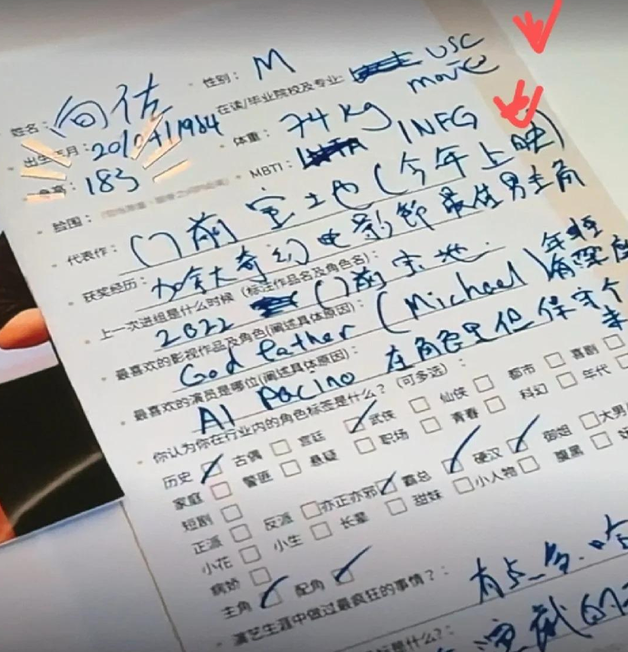 姓名：向佐 性别：M
出生年月：20/04/1984 在读/毕业院校及专业：USC movie
身高：183 体重：74kg
脸围： MBTI：INFG
代表作：门前宝地（今年上映）
获奖经历：加拿大奇幻电影节最佳男主角
上一次进组是什么时候（标注作品名及角色名）：
2022 门前宝地
最喜欢的影视作品及角色(阐述具体原因)：
God father (Michael) 年轻有深度
最喜欢的演员是哪位(阐述具体原因)：
Al Pacino 在角色里但保守个
你认为你在行业内的角色标签是什么？（可多选）：
历史 古偶 宫廷 武侠 仙侠 都市 喜剧
家庭 警匪 悬疑 职场 青春 科幻 年代
短剧
正派 反派 亦正亦邪 霸总 硬汉 御姐 大男
小花 小生 长辈 甜妹 小人物 腹黑
病娇
主角 配角
演艺生涯中做过最疯狂的事情？：有点多
是什么?：